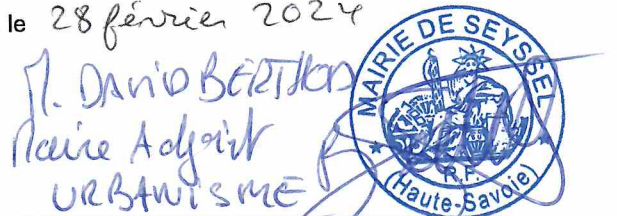 le 28 février 2024
M. DAVID BERTHOD
Maire Adjoint
URBANISME
MAIRIE DE SEYSSEL
R.F.
(Haute-Savoie)